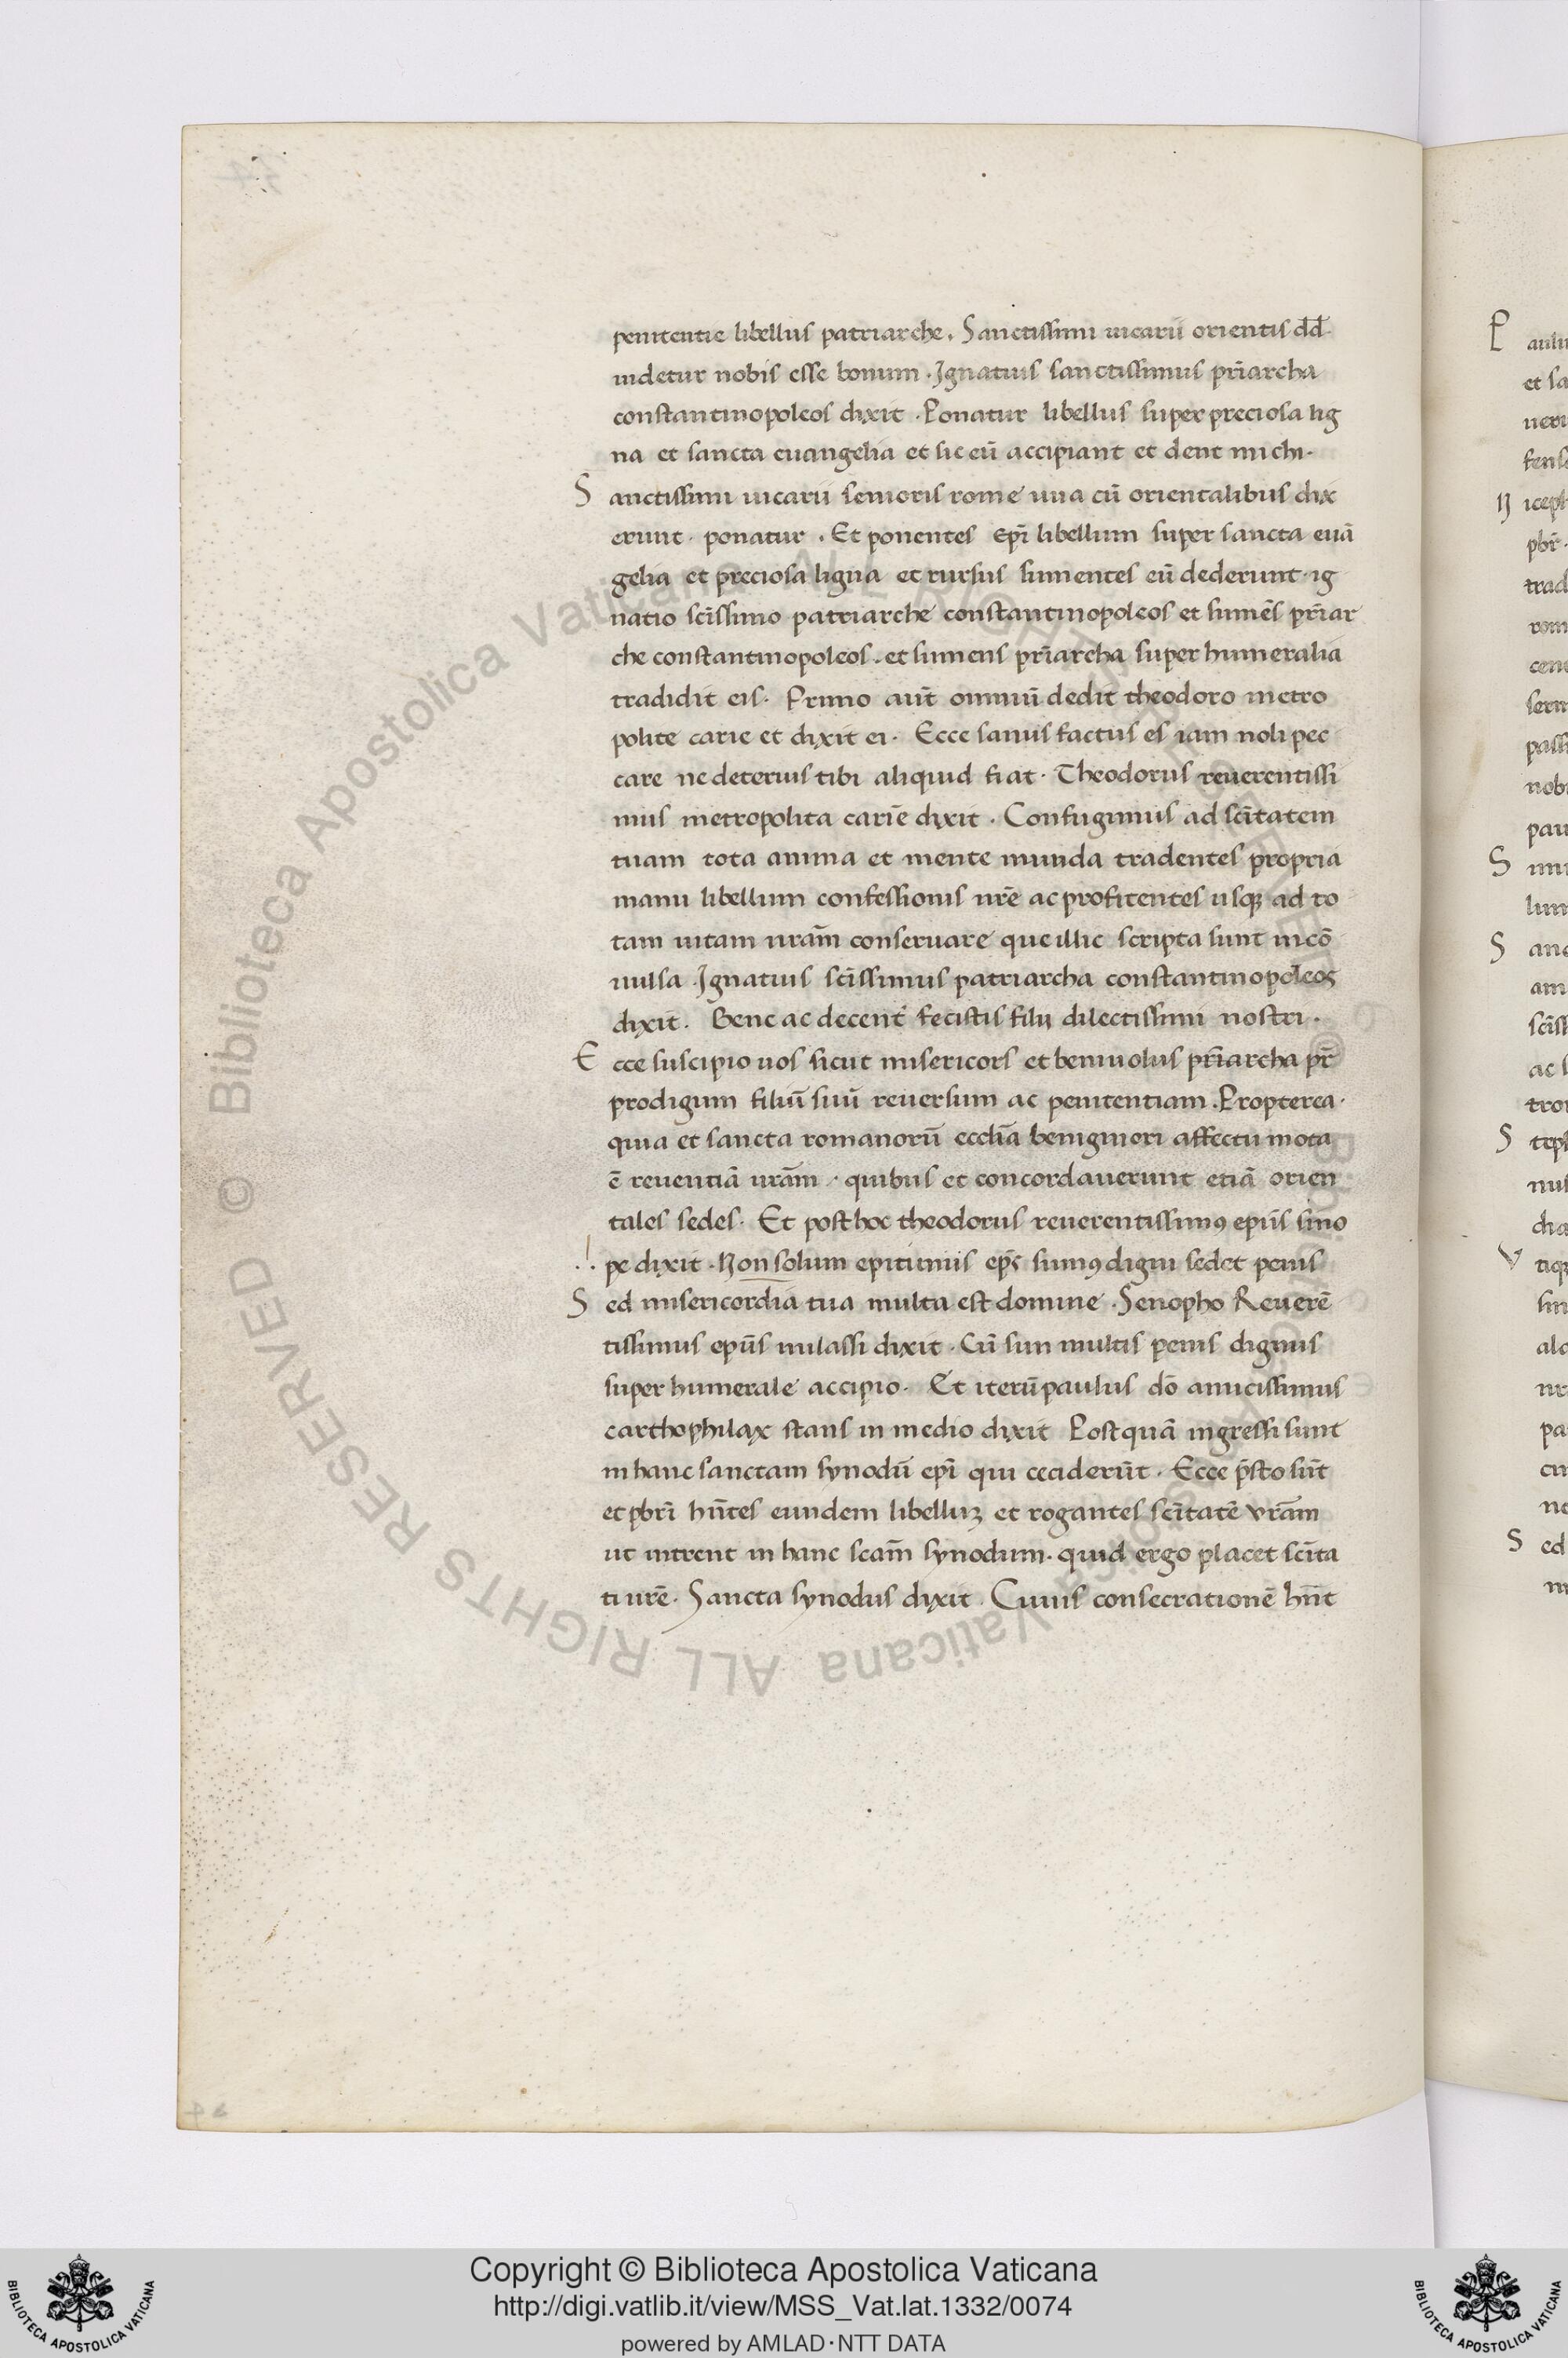 penitentie libellus patriarche. Sanctissimi uicarii orientis dd̄.
uidetur nobis esse bonum. Ignatius sanctissimus pr̄iarcha
constantinopoleos dixit. Ponatur libellus super preciosa lig
na et sancta euangelia et sic eū accipiant et dent michi.
Sanctissimi uicarii senioris rome una cū orientalibus dix
erunt. ponatur. Et ponentes ep̄i libellum super sancta euā
gelia et preciosa ligna et rursus sumentes eū dederunt. ig
natio sc̄issimo patriarche constantinopoleos et sumēs pr̄iar
che constantinopoleos. et sumens pr̄iarcha super humeralia
tradidit eis. Primo aūt omniū dedit theodoro metro
polite carie et dixit ei. Ecce sanus factus es iam noli pec
care ne deterius tibi aliquid fiat. Theodorus reuerentissi
mus metropolita carīe dixit. Confugimus ad sc̄itatem
tuam tota anima et mente munda tradentes propria
manu libellum confessionis nr̄e ac profitentes usqꝫ ad to
tam uitam nrām conseruare que illic scripta sunt incō
uulsa. Ignatius sc̄issimus patriarcha constantinopoleos
dixit. Bene ac decent̄ fecistis filii dilectissimi nostri.
Ecce suscipio uos sicut misericors et beniuolus pr̄iarcha pr̄
prodigum filiū suū reuersum ac penitentiam. Propterea.
quia et sancta romanorū eccl̄ia benigniori affectu mota
ē reuentiā urām. quibus et concordauerunt etiā orien
tales sedes. Et post hoc theodorus reuerentissimꝰ ep̄us sino
pe dixit. Non solum epitimiis ep̄c sumꝰ digni sed et penis
Sed misericordia tua multa est domine. Senopho Reuerē
tissimus ep̄us milassi dixit. Cū sim multis penis dignus
super humerale accipio. Et iterū paulus dō amicissimus
carthophilax stans in medio dixit Postquā ingressi sunt
in hanc sanctam synodū ep̄i qui ceciderūt. Ecce p̄sto sūt
et pbr̄i hn̄tes eundem libelluꝫ et rogantes sc̄itatē vrām
ut intrent in hanc scām synodum. quid ergo placet sc̄ita
ti urē. Sancta synodus dixit. Cuius consecrationē hn̄t
© Biblioteca Apostolica Vaticana ALL RIGHTS RESERVED
Copyright © Biblioteca Apostolica Vaticana
http://digi.vatlib.it/view/MSS_Vat.lat.1332/0074
powered by AMLAD·NTT DATA
BIBLIOTECA APOSTOLICA VATICANA
BIBLIOTECA APOSTOLICA VATICANA